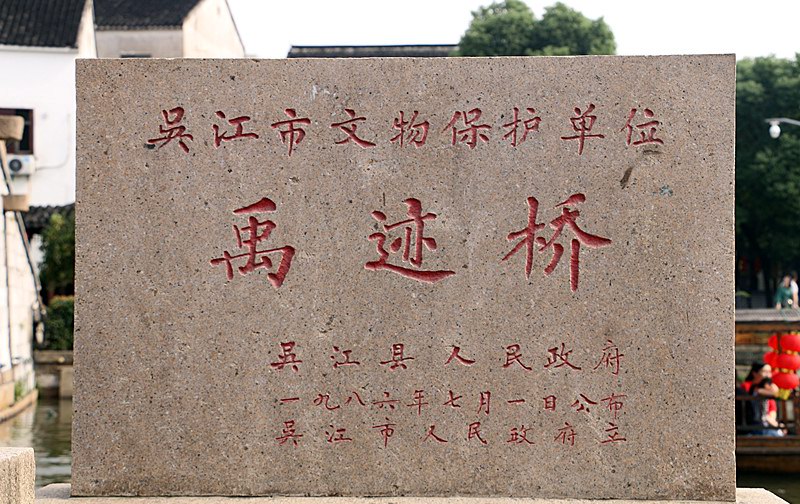 吳江市文物保护单位
禹迹桥
吳江县人民政府
一九八六年七月一日公布
吳江市人民政府立